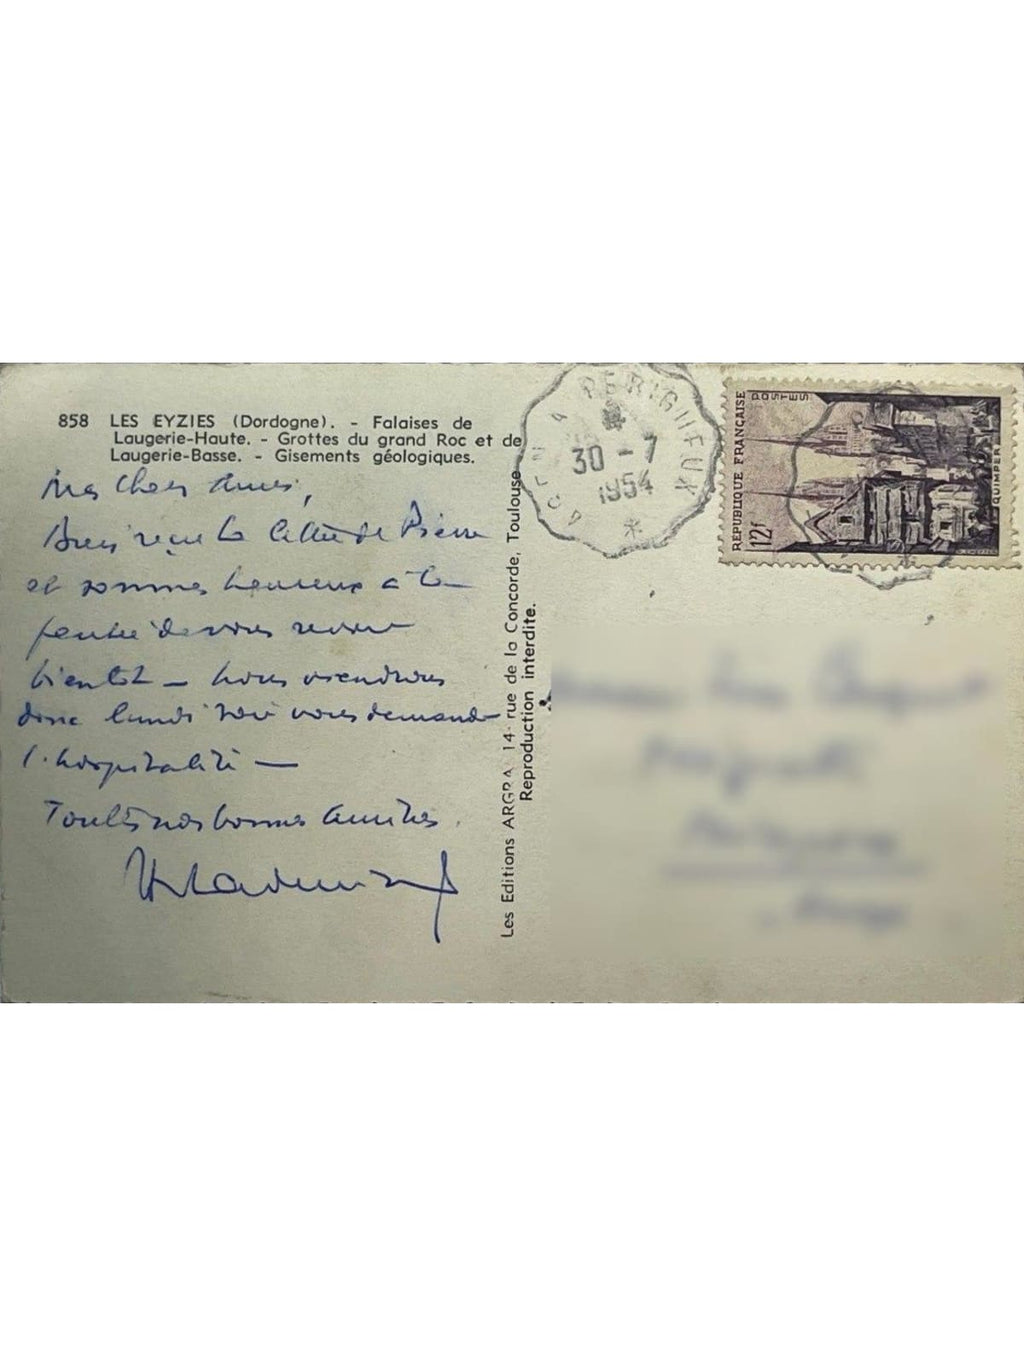 858 LES EYZIES (Dordogne). - Falaises de
Laugerie-Haute. - Grottes du grand Roc et de
Laugerie-Basse. - Gisements géologiques.
Mes chers amis,
Bien reçu la lettre de Pierre
et sommes heureux à la
pensée de vous revoir
bientôt — nous viendrons
donc lundi soir vous demander
l'hospitalité —
Toutes nos bonnes amitiés.
Les Editions ARGRA, 14 rue de la Concorde, Toulouse
Reproduction interdite.
AGEN A PERIGUEUX
30 - 7
1954
REPUBLIQUE FRANÇAISE
POSTES
12f
QUIMPER